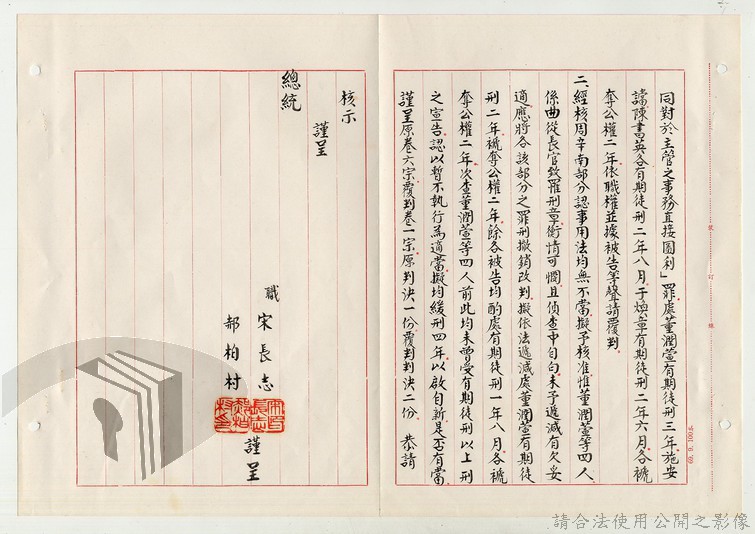 同對於主管之事務直接圖利」罪處董潤萱有期徒刑三年施安
譑陳書英各有期徒刑二年八月于煥章有期徒刑二年六月各褫
奪公權二年依職權並據被告等聲請覆判
二、經核周辛南部分認事用法均無不當擬予核准惟董潤萱等四人
係曲從長官致罹刑章衡情可憫且偵查中自白未予遞減有欠妥
適應將各該部分之罪刑撤銷改判擬依法遞減處董潤萱有期徒
刑二年褫奪公權二年餘各被告均酌處有期徒刑一年八月各褫
奪公權二年次查董潤萱等四人前此均未曾受有期徒刑以上刑
之宣告認以暫不執行為適當擬均緩刑四年以啟自新是否有當
謹呈原卷六宗覆判卷一宗原判決一份覆判判決二份 恭請
核示
謹呈
總統
職 宋長志
郝柏村
謹呈
貳 訂 線
請合法使用公開之影像